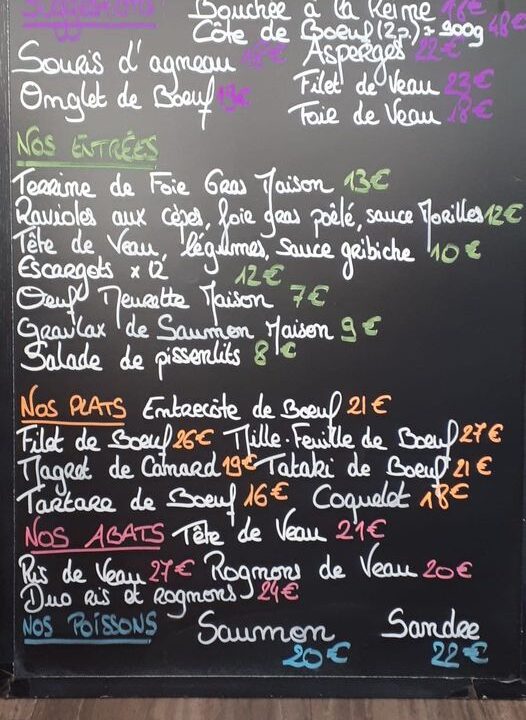 Bouchée à la Reine 18€
Côte de Boeuf (2p.) ± 900g 48€
Souris d'agneau Asperges 22€
Onglet de Boeuf Filet de Veau 23€
Foie de Veau 18€
NOS ENTRÉES
Terrine de Foie Gras Maison 13€
Ravioles aux cèpes, foie gras poêlé, sauce Morilles 12€
Tête de Veau, légumes, Sauce gribiche 10€
Escargots x 12 12€
Oeuf Meurette Maison 7€
Gravlax de Saumon Maison 9€
Salade de pissenlits 8€
NOS PLATS Entrecôte de Boeuf 21€
Filet de Boeuf 26€ Mille-Feuille de Boeuf 27€
Magret de Canard 19€ Tataki de Boeuf 21€
Tartare de Boeuf 16€ Coquelet 18€
NOS ABATS Tête de Veau 21€
Ris de Veau 27€ Rognons de Veau 20€
Duo Ris et Rognons 24€
NOS POISSONS Saumon Sandre
20€ 22€